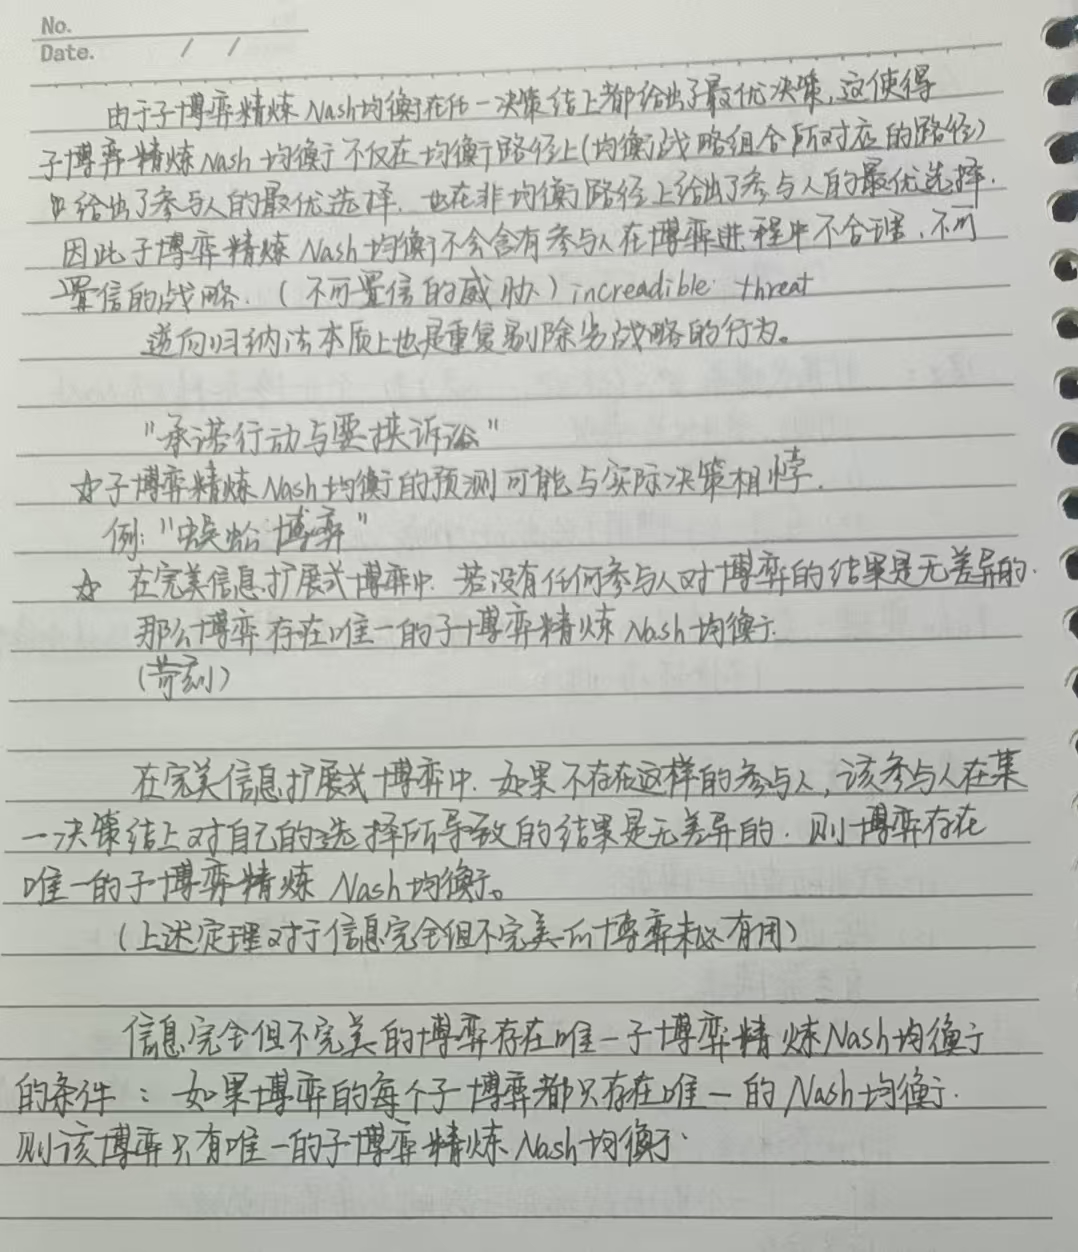 No.
Date. / /
由于子博弈精炼Nash均衡在任一决策结上都给出了最优决策,这使得
子博弈精炼Nash均衡不仅在均衡路径上(均衡战略组合所对应的路径)
给出了参与人的最优选择.也在非均衡路径上给出了参与人的最优选择.
因此子博弈精炼Nash均衡不会含有参与人在博弈进程中不合理、不可
置信的战略.(不可置信的威胁)increadible threat
逆向归纳法本质上也是重复剔除劣战略的行为。
"承诺行动与要挟诉讼"
☆子博弈精炼Nash均衡的预测可能与实际决策相悖.
例:"蜈蚣博弈"
☆ 在完美信息扩展式博弈中.若没有任何参与人对博弈的结果是无差异的.
那么博弈存在唯一的子博弈精炼Nash均衡.
(苛刻)
在完美信息扩展式博弈中.如果不存在这样的参与人,该参与人在某
一决策结上对自己的选择所导致的结果是无差异的.则博弈存在
唯一的子博弈精炼Nash均衡。
(上述定理对于信息完全但不完美的博弈未必有用)
信息完全但不完美的博弈存在唯一子博弈精炼Nash均衡
的条件:如果博弈的每个子博弈都只存在唯一的Nash均衡.
则该博弈只有唯一的子博弈精炼Nash均衡.